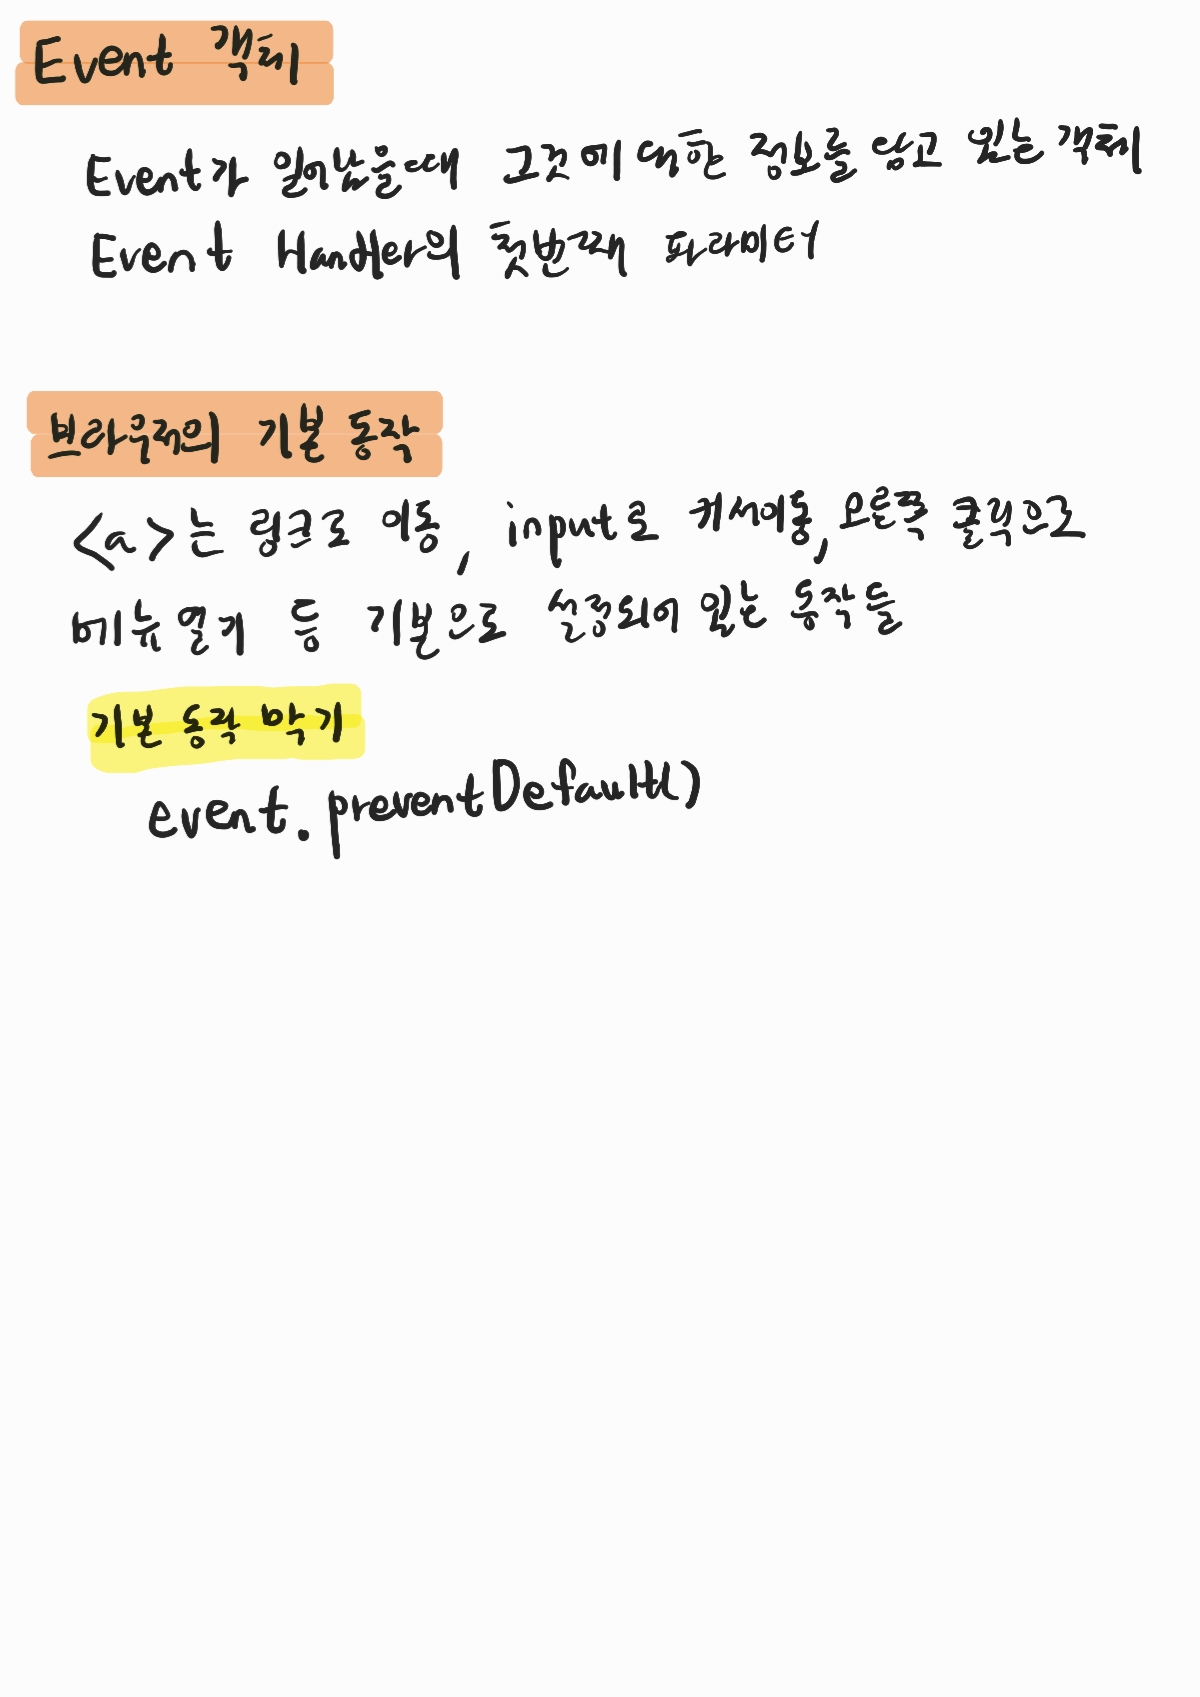 Event 객체
Event가 일어났을때 그것에 대한 정보를 담고 있는 객체
Event Handler의 첫번째 파라미터
브라우저의 기본 동작
<a>는 링크로 이동, input로 커서이동, 오른쪽 클릭으로
메뉴 열기 등 기본으로 설정되어 있는 동작들
기본 동작 막기
event.preventDefault()